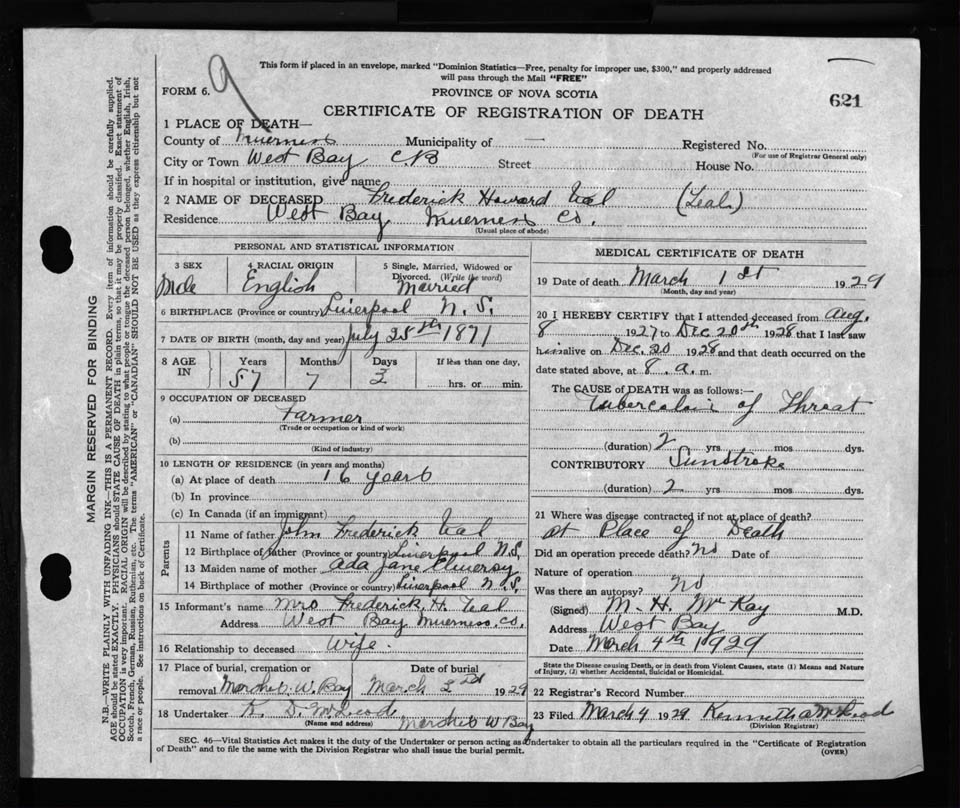 This form if placed in an envelope, marked "Dominion Statistics—Free, penalty for improper use, $300," and properly addressed
will pass through the Mail "FREE"
FORM 6. 9 PROVINCE OF NOVA SCOTIA 621
CERTIFICATE OF REGISTRATION OF DEATH
1 PLACE OF DEATH—
County of Inverness Municipality of — Registered No.
(For use of Registrar General only)
City or Town West Bay CB Street House No.
If in hospital or institution, give name
2 NAME OF DECEASED Frederick Howard Teal (Teale)
Residence West Bay Inverness Co.
(Usual place of abode)
PERSONAL AND STATISTICAL INFORMATION
3 SEX 4 RACIAL ORIGIN 5 Single, Married, Widowed or
Divorced. (Write the word)
Male English Married
6 BIRTHPLACE (Province or country) Liverpool N. S.
7 DATE OF BIRTH (month, day and year) July 25th 1871
8 AGE IN Years Months Days If less than one day,
57 7 3 hrs. or min.
9 OCCUPATION OF DECEASED
(a) Farmer
(Trade or occupation or kind of work)
(b)
(Kind of industry)
10 LENGTH OF RESIDENCE (in years and months)
(a) At place of death 16 years
(b) In province
(c) In Canada (if an immigrant)
Parents
11 Name of father John Frederick Teal
12 Birthplace of father (Province or country) Liverpool N.S.
13 Maiden name of mother Ada Jane
14 Birthplace of mother (Province or country) Liverpool N. S.
15 Informant's name Mrs Frederick H. Teal
Address West Bay Inverness Co.
16 Relationship to deceased Wife.
17 Place of burial, cremation or Date of burial
removal W. Bay March 1929
18 Undertaker K. D. McLeod
(Name and address) W Bay
MEDICAL CERTIFICATE OF DEATH
19 Date of death March 1st 1929
(Month, day and year)
20 I HEREBY CERTIFY that I attended deceased from Aug.
8 1927 to Dec 20th 1928 that I last saw
him alive on Dec. 20 1928 and that death occurred on the
date stated above, at 8. a. m.
The CAUSE OF DEATH was as follows:—
Tuberculosis of Throat
(duration) 2 yrs. mos. dys.
CONTRIBUTORY Sunstroke
(duration) 2 yrs mos. dys.
21 Where was disease contracted if not at place of death?
at Place of Death
Did an operation precede death? No Date of
Nature of operation
Was there an autopsy? No
(Signed) M. H. McKay M.D.
Address West Bay
Date March 4th 1929
State the Disease causing Death, or in death from Violent Causes, state (1) Means and Nature
of Injury, (2) whether Accidental, Suicidal or Homicidal.
22 Registrar's Record Number
23 Filed March 4 1929 Kenneth McLeod
(Division Registrar)
SEC. 46—Vital Statistics Act makes it the duty of the Undertaker or person acting as Undertaker to obtain all the particulars required in the "Certificate of Registration
of Death" and to file the same with the Division Registrar who shall issue the burial permit. (OVER)
MARGIN RESERVED FOR BINDING
N.B.—WRITE PLAINLY WITH UNFADING INK—THIS IS A PERMANENT RECORD. Every item of information should be carefully supplied.
AGE should be stated EXACTLY. PHYSICIANS should STATE CAUSE OF DEATH in plain terms, so that it may be properly classified. Exact statement of
OCCUPATION is very important. RACIAL ORIGIN will be described by stating to what people or tongue the deceased person belonged, whether English, Irish,
Scotch, French, German, Russian, Ruthenian, etc. The terms "AMERICAN" or "CANADIAN" SHOULD NOT BE USED as they express citizenship but not
a race or people. See instructions on back of Certificate.